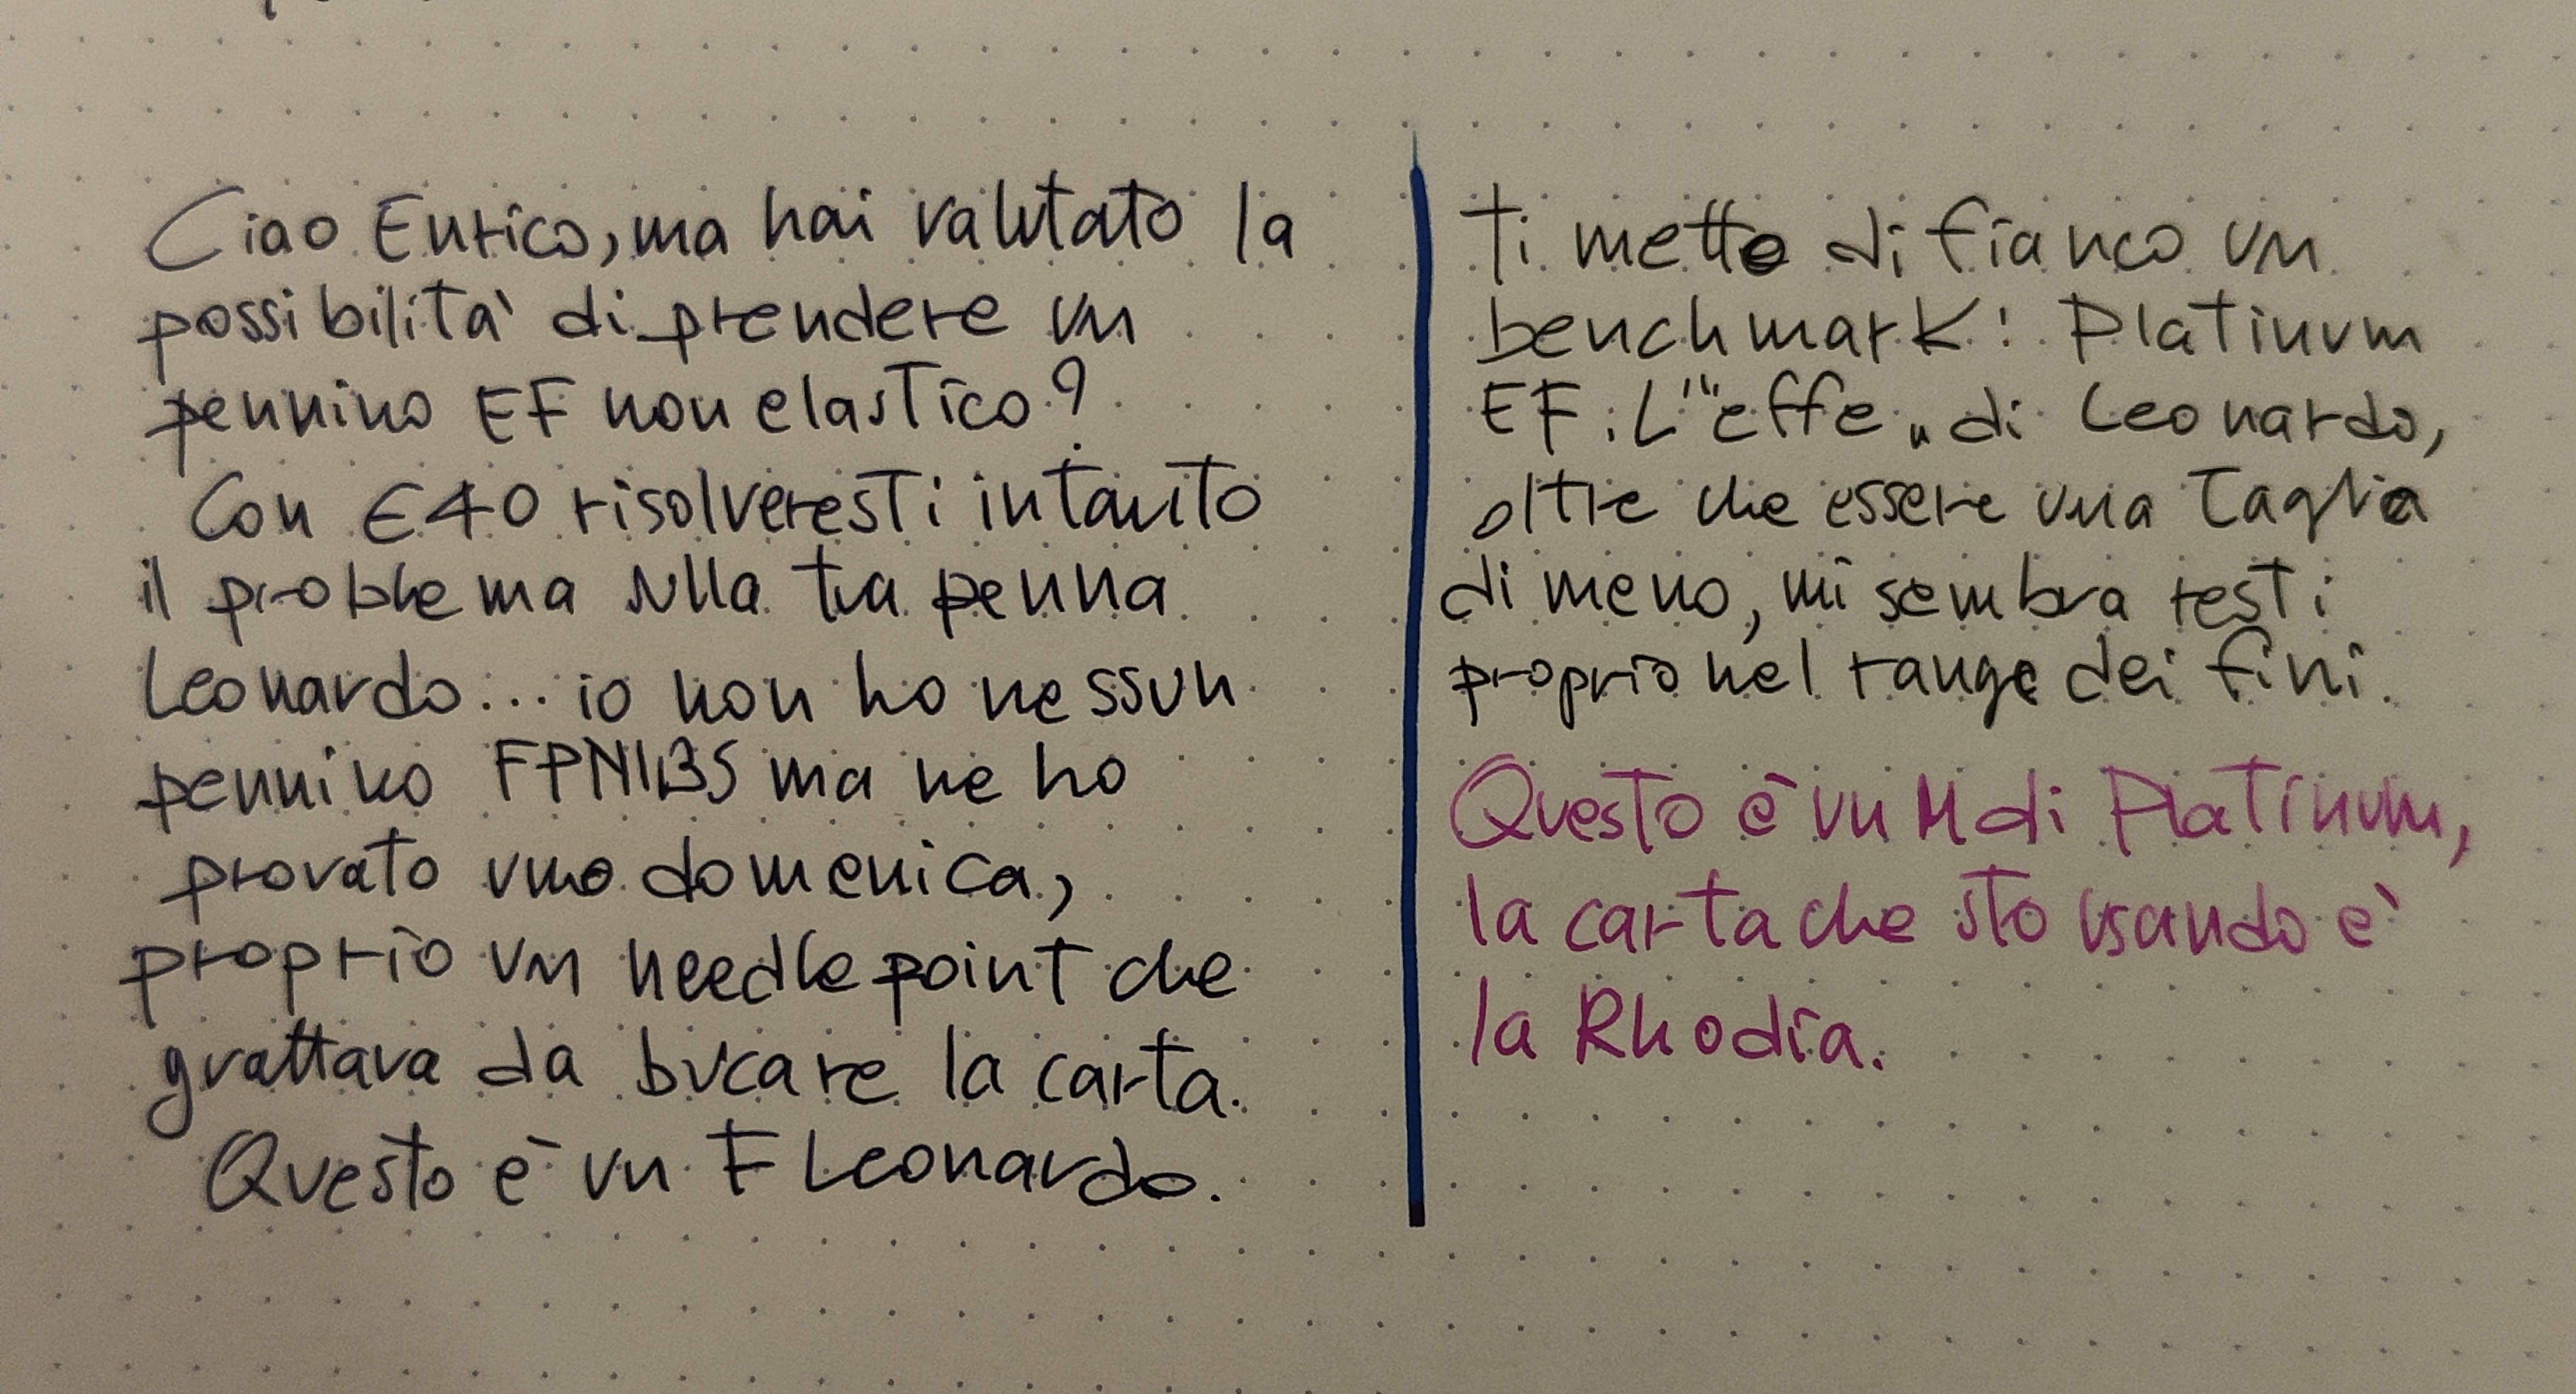 Ciao Enrico, ma hai valutato la
possibilità di prendere un
pennino EF non elastico?
Con €40 risolveresti intanto
il problema sulla tua penna
Leonardo... io non ho nessun
pennino FPNIBS ma ne ho
provato uno domenica,
proprio un needlepoint che
grattava da bucare la carta.
Questo è un F Leonardo.
Ti metto di fianco un
benchmark: Platinum
EF. L'"effe" di Leonardo,
oltre che essere una taglia
di meno, mi sembra resti
proprio nel range dei fini.
Questo è un M di Platinum,
la carta che sto usando è
la Rhodia.